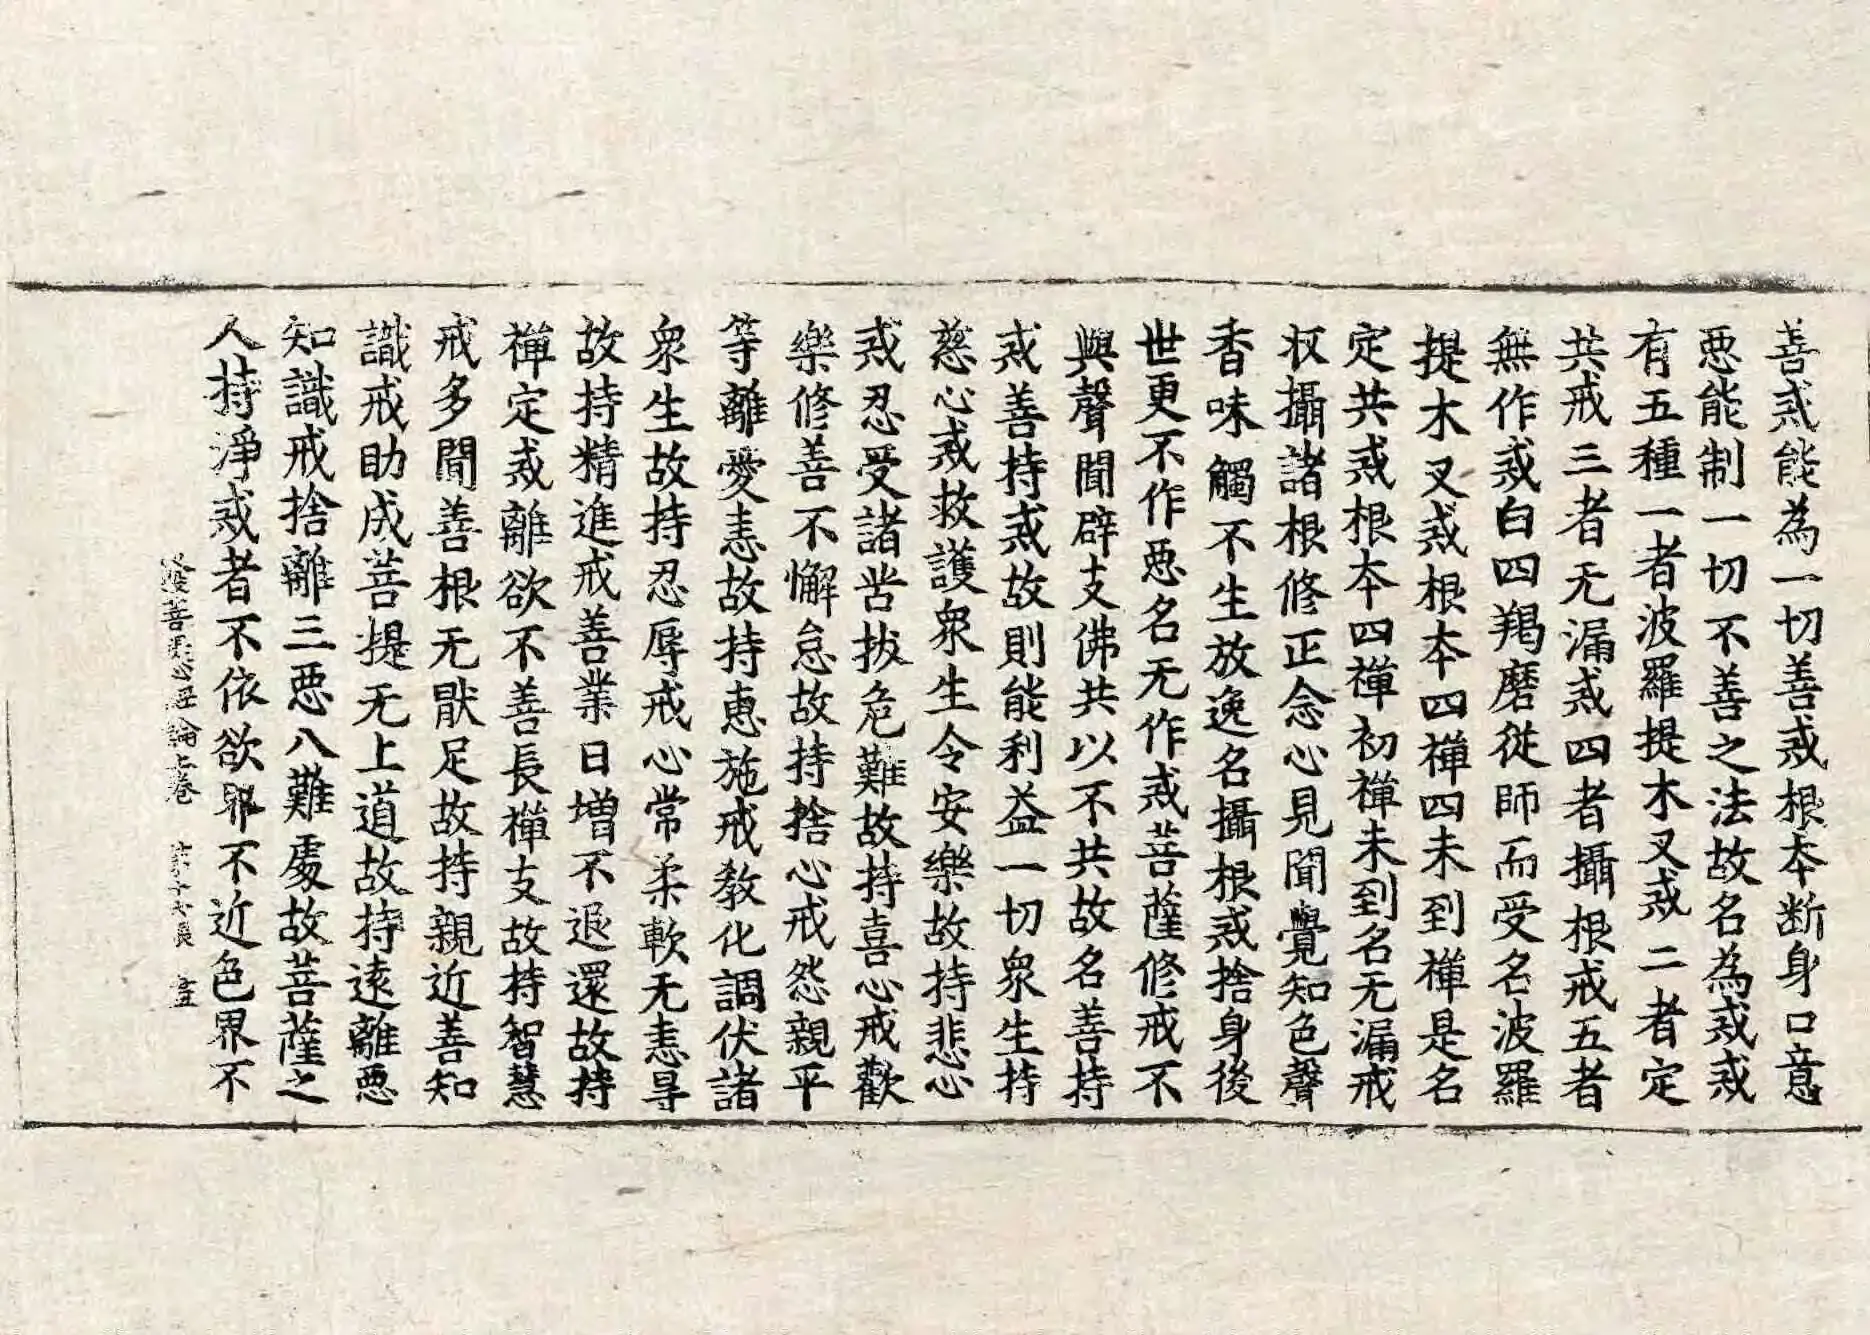 善戒能為一切善戒根本断身口意
惡能制一切不善之法故名為戒戒
有五種一者波羅提木叉戒二者定
共戒三者无漏戒四者攝根戒五者
無作戒白四羯磨従師而受名波羅
提木叉戒根本四禪四未到禪是名
定共戒根本四禪初禪未到名无漏戒
収攝諸根修正念心見聞覺知色聲
香味觸不生放逸名攝根戒捨身後
世更不作惡名无作戒菩薩修戒不
與聲聞辟支佛共以不共故名善持
戒善持戒故則能利益一切衆生持
慈心戒救護衆生令安樂故持悲心
戒忍受諸苦拔危難故持喜心戒歡
樂修善不懈怠故持捨心戒怨親平
等離愛恚故持惠施戒教化調伏諸
衆生故持忍辱戒心常柔軟无恚㝵
故持精進戒善業日增不退還故持
禪定戒離欲不善長禪支故持智慧
戒多聞善根无猒足故持親近善知
識戒助成菩提无上道故持遠離惡
知識戒捨離三惡八難處故菩薩之
人持淨戒者不依欲界不近色界不
發菩提心經論上卷 第十六張